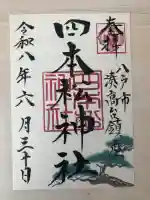 奉拝
八戸市
湊高台鎮座
四本松神社
令和八年六月三十日